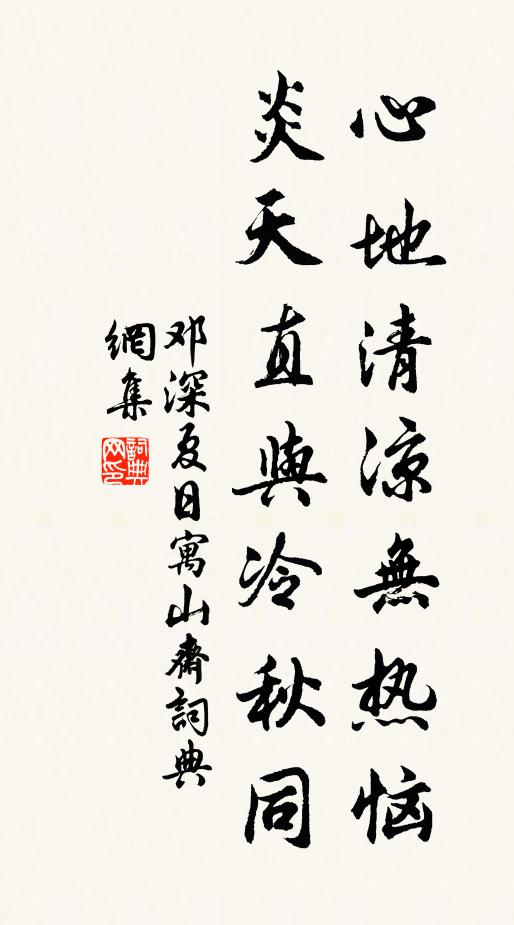 心地清凉無热恼
炎天直與冷秋同
邓深夏日寓山齋詞典
網集
詞典
网印